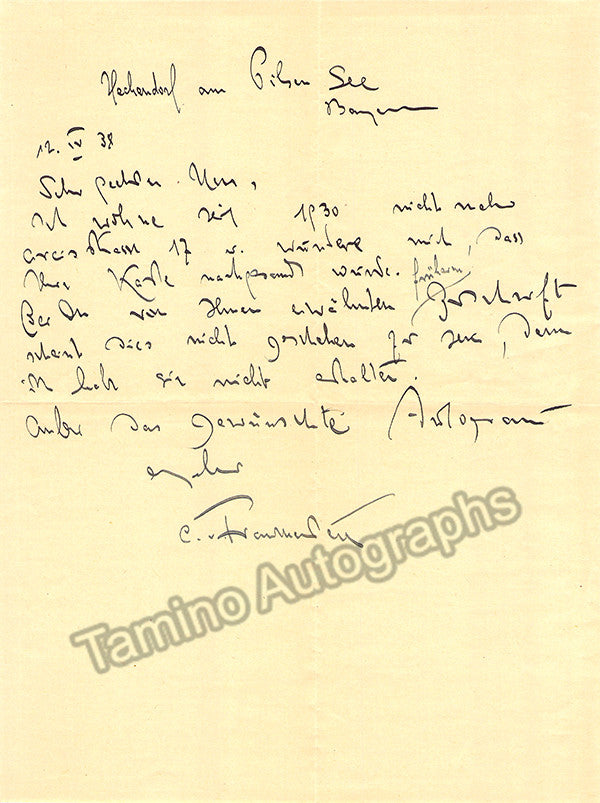 Hechendorf am Pilsen See
Bayern
12. IV 38
Sehr geehrter Herr,
Ich wohne seit 1930 nicht mehr
Arcisstrasse 17 u. wundere mich, dass
Ihre Karte nachgesandt wurde.
früheren
Bei der von Ihnen erwähnten Zuschrift
scheint dies nicht geschehen zu sein, denn
ich habe sie nicht erhalten.
Anbei das gewünschte Autogramm
ergeben
C. v. Franckenstein
Tamino Autographs